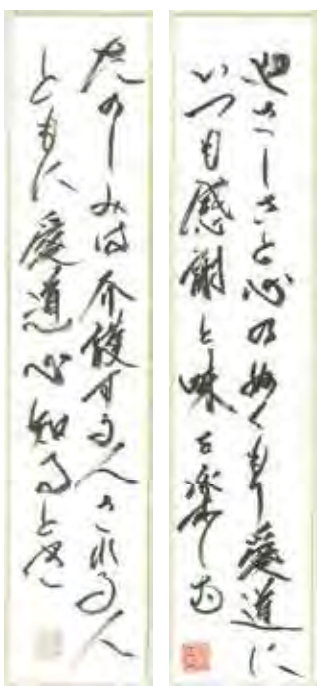 やさしさと心のぬくもり愛道に
いつも感謝と味を楽しむ
たのしみは介護する人される人
ともに愛道心知るとき